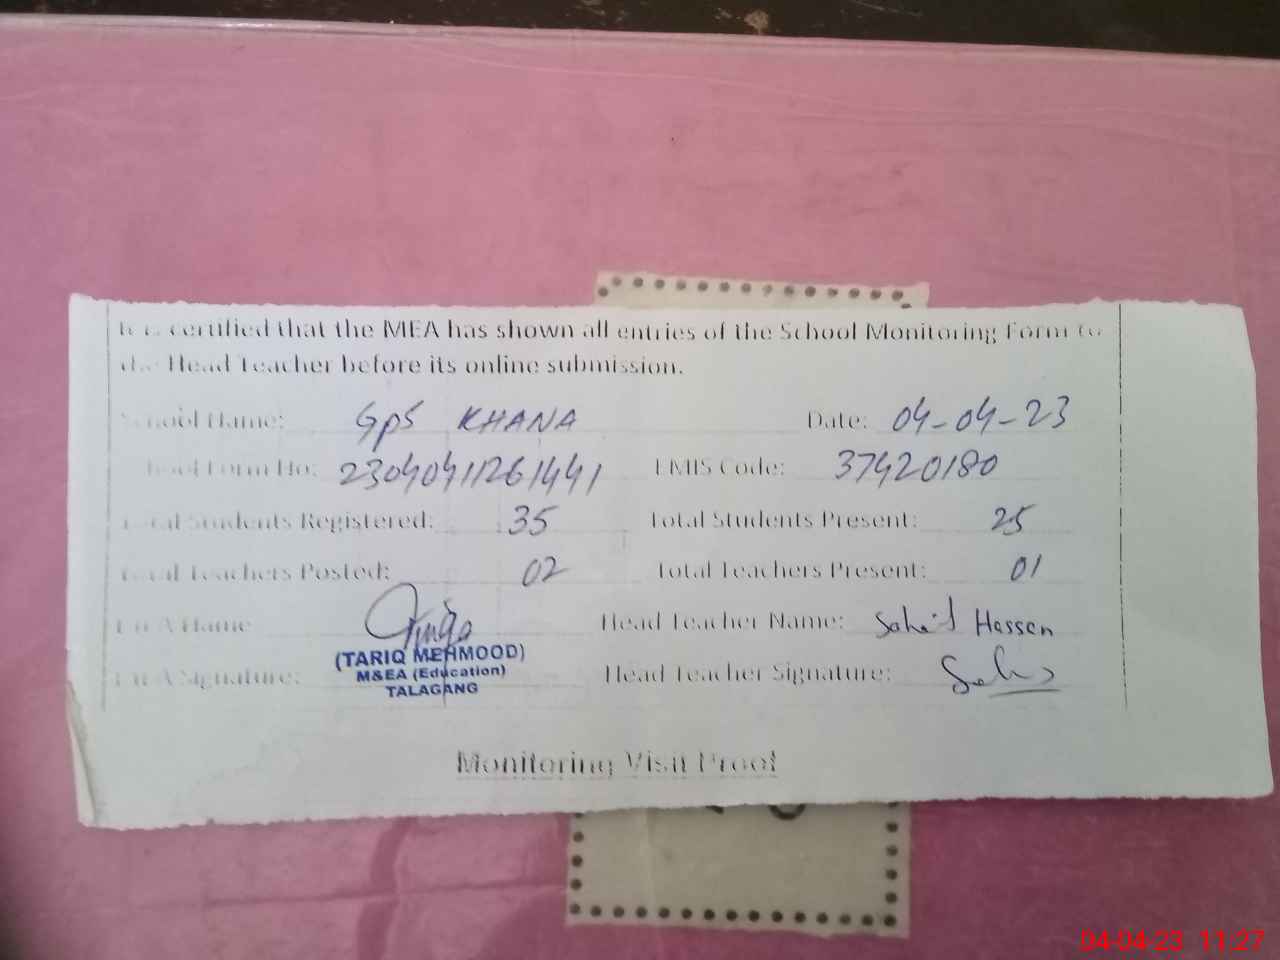 It is certified that the MEA has shown all entries of the School Monitoring Form to
the Head Teacher before its online submission.
School Name: GPS KHANA Date: 04-04-23
School Form No: 23040411261441 EMIS Code: 37420180
Total Students Registered: 35 Total Students Present: 25
Total Teachers Posted: 02 Total Teachers Present: 01
Name Head Teacher Name: Hassan
(TARIQ MEHMOOD)
M&EA (Education)
TALAGANG
Signature: Head Teacher Signature:
Monitoring Visit Proof
04-04-23 11:27